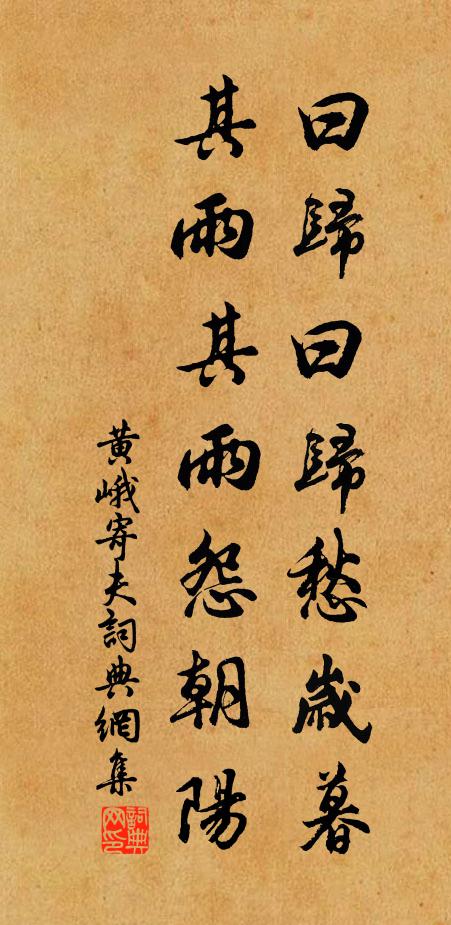 曰歸曰歸愁歲暮
其雨其雨怨朝陽
黄峨寄夫詞典網集
詞典网印